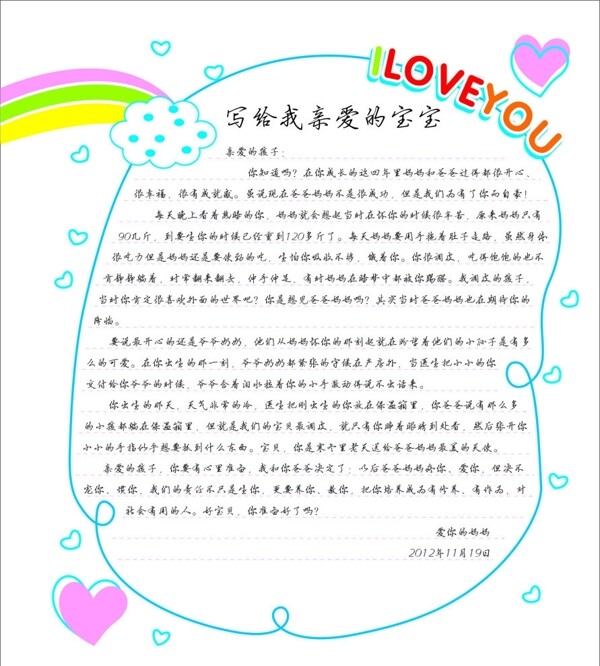 I LOVE YOU
写给我亲爱的宝宝
亲爱的孩子：
你知道吗？在你成长的这四年里妈妈和爸爸过得都很开心、
很幸福，很有成就感。虽说现在爸爸妈妈不是很成功，但是我们而有了你而自豪！
每天晚上看着熟睡的你，妈妈就会想起当时在怀你的时候很辛苦，原来妈妈只有
90几斤，到要生你的时候已经重到120多斤了。每天妈妈要用手拖着肚子走路，虽然身体
很吃力但是妈妈还是要使劲的吃，生怕你吸收不够，饿着你。你很调皮，吃得饱饱的也不
肯静静躺着，时常翻来翻去，伸手伸足，有时妈妈在睡梦中都被你踢醒。我调皮的孩子，
当时你肯定很喜欢外面的世界吧？你是想见爸爸妈妈吗？其实当时爸爸妈妈也在期待你的
降临。
要说最开心的还是爷爷奶奶，他们从妈妈怀你的那刻起就在盼望着他们的小孙子是有多
么的可爱。在你出生的那一刻，爷爷奶奶都紧张的守候在产房外，当医生把小小的你
交付给你爷爷的时候，爷爷含着泪水拉着你的小手激动得说不出话来。
你出生的那天，天气非常的冷，医生把刚出生的你放在保温箱里，你爸爸说有那么多
的小孩都躺在保温箱里，但就是我们的宝贝最调皮，就只有你睁着眼睛到处看，然后张开你
小小的手指似乎想要抓到什么东西。宝贝，你是寒冬里老天送给爸爸妈妈最美的天使。
亲爱的孩子，你要有心里准备，我和你爸爸决定了：以后爸爸妈妈疼你、爱你，但决不
宠你、惯你，我们的责任不只是生你，更要养你、教你，把你培养成为有修养、有作为，对
社会有用的人。好宝贝，你准备好了吗？
爱你的妈妈
2012年11月19日